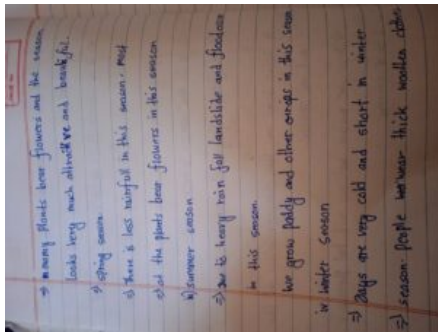 ⇒ many plants bear flowers and the season
looks very much attractive and beautiful.
⇒ there is less rainfall in this season. most
of the plants bear flowers in this season
b) summer season
⇒ Due to heavy rain fall landslide and
in this season.
we grow paddy and other crops in this season
winter season
⇒ Days are very cold and short in winter
⇒ season. people wear thick woollen